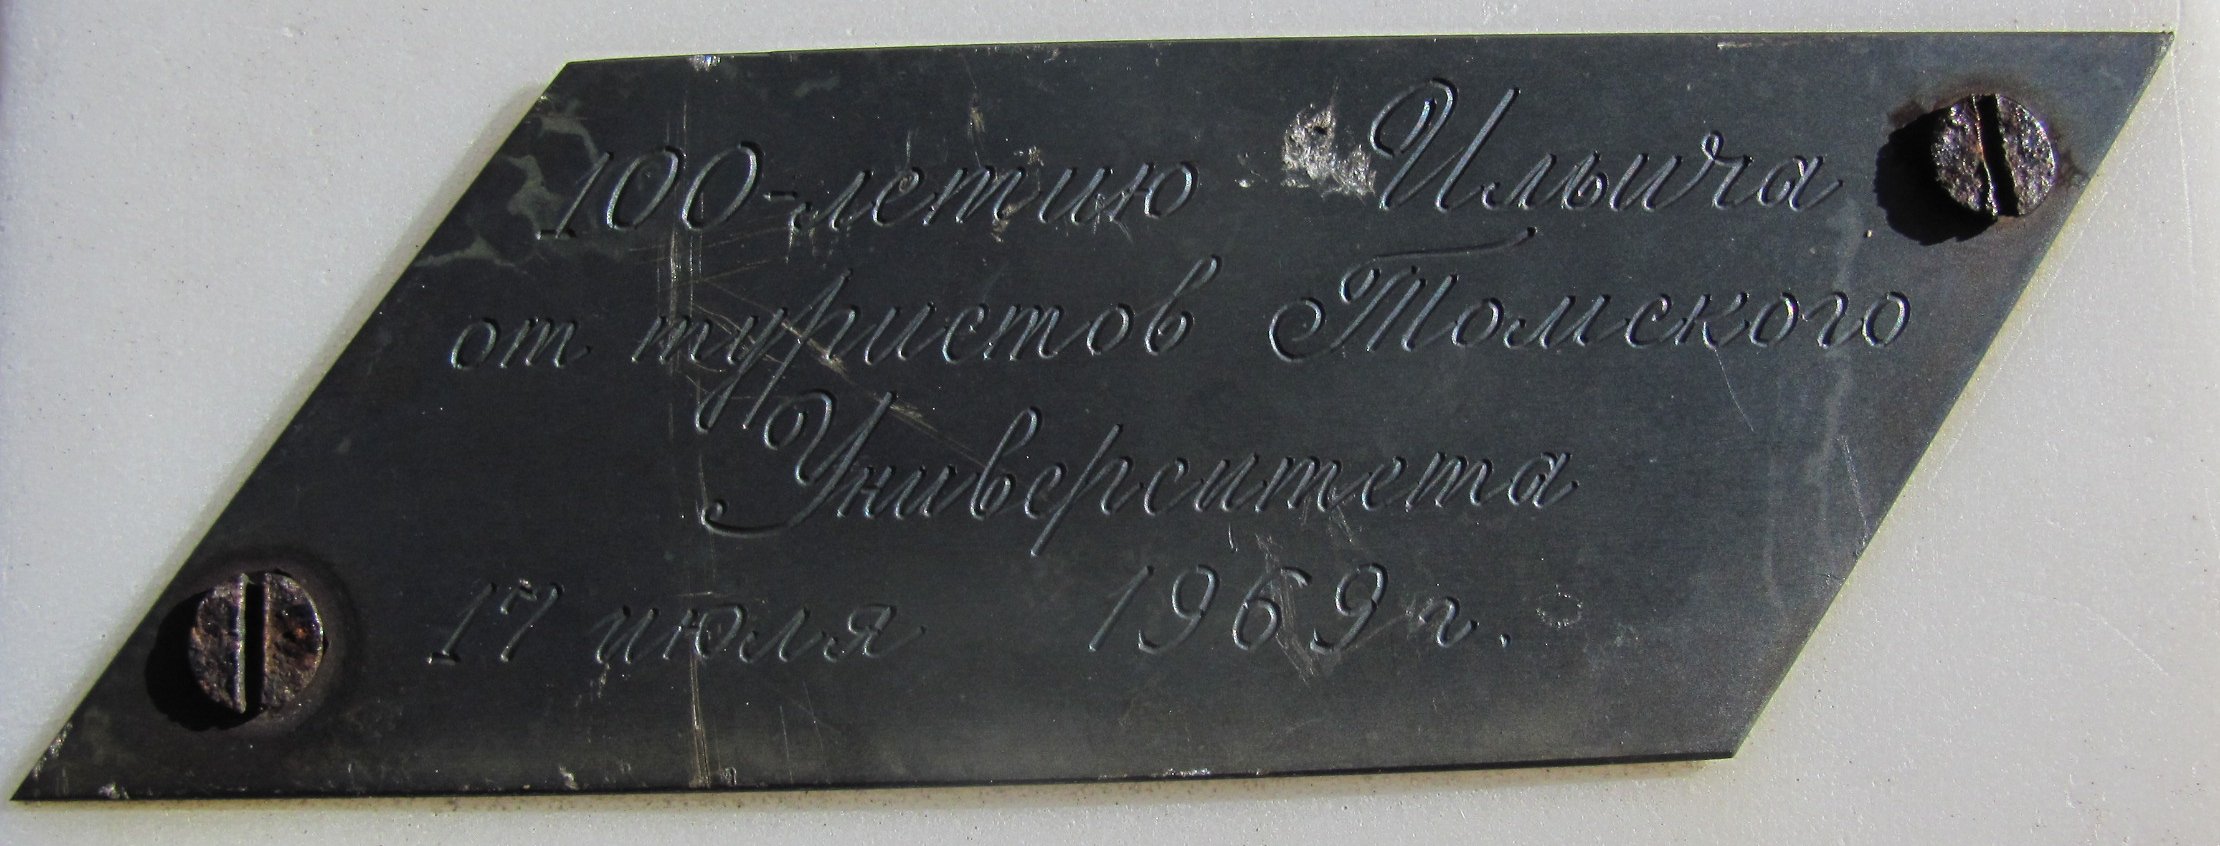 100-летию Ильича
от туристов Томского
Университета
17 июля 1969 г.